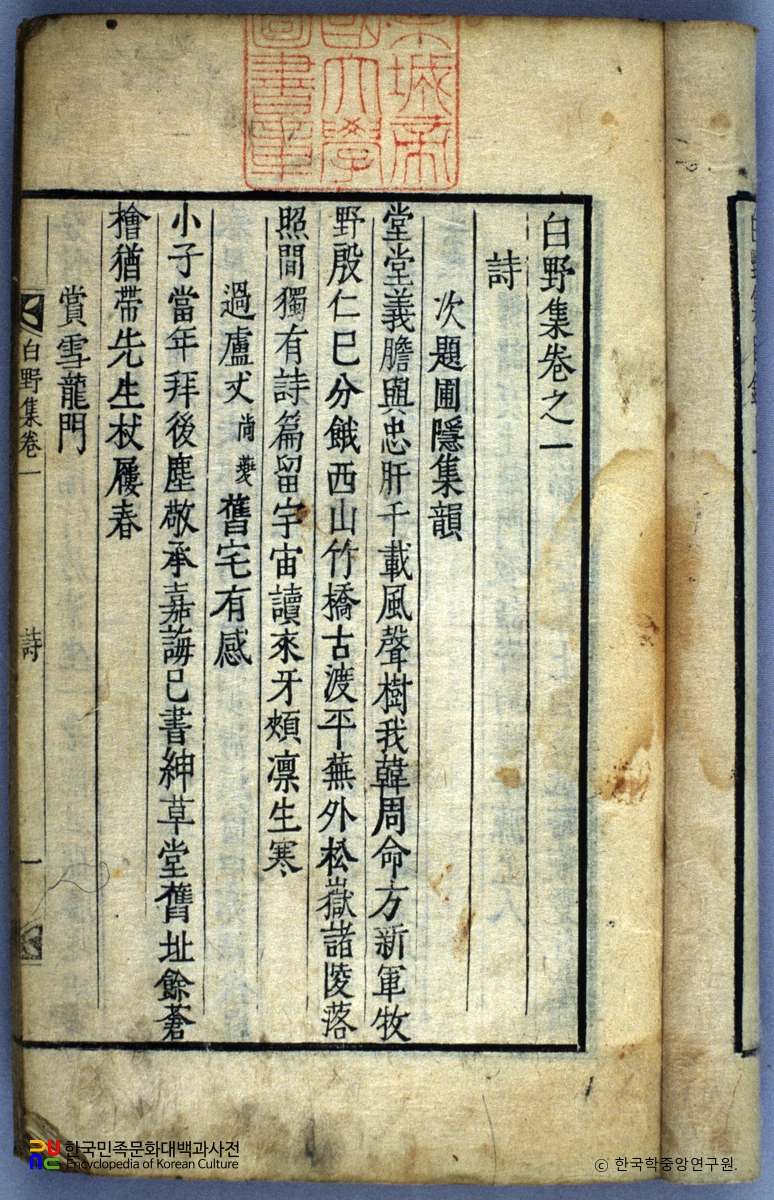 京城帝
國大學
圖書章
白野集卷之一
詩
次題圃隱集韻
堂堂義膽與忠肝千載風聲樹我韓周命方新軍牧
野殷仁已分餓西山竹橋古渡平蕪外松嶽諸陵落
照間獨有詩篇留宇宙讀來牙頰凛生寒
過盧丈尚夔舊宅有感
小子當年拜後塵敬承嘉誨已書紳草堂舊址餘蒼
檜猶帶先生杖屨春
賞雪龍門
白野集卷一 詩 一
한국민족문화대백과사전
Encyclopedia of Korean Culture
© 한국학중앙연구원.